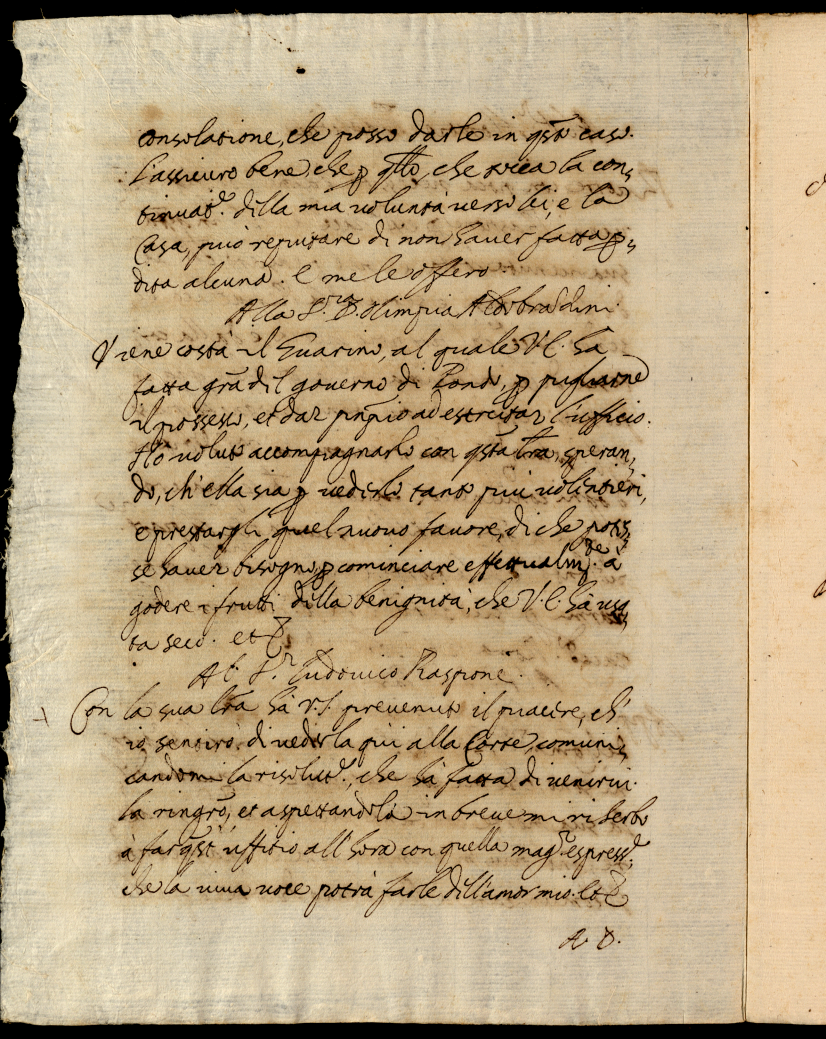 consolatione, che posso darle in q̃sto caso.
L'assicuro bene, che ꝑ q̃llo, che tocca la con,
tinuat.ᵉ della mia voluntà verso lei, e la
Casa, può reputare di non haver fatta ꝑ,
dita alcuna. E me le offero
Alla S.ʳᵃ D. Olimpia Aldobrãdini
Viene costà il Guarino, al quale V. E. ha
fatta grã del governo di, ꝑ pigliarne
il possesso, et dar pñpio ad esercitar l'ufficio.
Hò voluto accompagnarlo con q̃sta lr̃a, speran,
do, ch'ella sia ꝑ vederlo tanto più volentieri,
e prestargli quel nuovo favore, di che potes,
se haver bisogno, ꝑ cominciare effettualm.ᵗᵉ à
godere i frutti della benignità, che V. E. hà usa,
ta seco. et
Al S.ʳ Ludovico Rasponi
Con la sua lr̃a hà V. S. prevenuto il piacere, ch'
io sentirò di vederla qui alla Corte, comuni,
candomi la risolut.ᵉ, che hà fatta di venirvi.
la ringrõ, et aspettandola in breve mi riserbo
à far q̃st' uffitio all'hora con quella mag.ʳ espress.ᵉ
che la viva voce potrà farle dell'amor mio. Et
A. D.